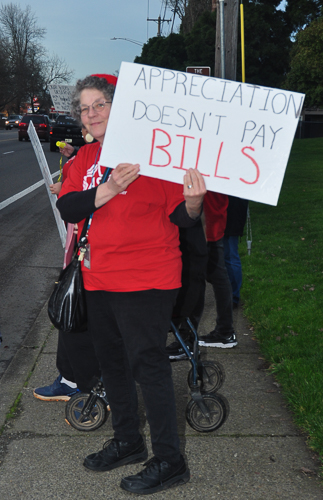 APPRECIATION
DOESN'T PAY
BILLS
THE